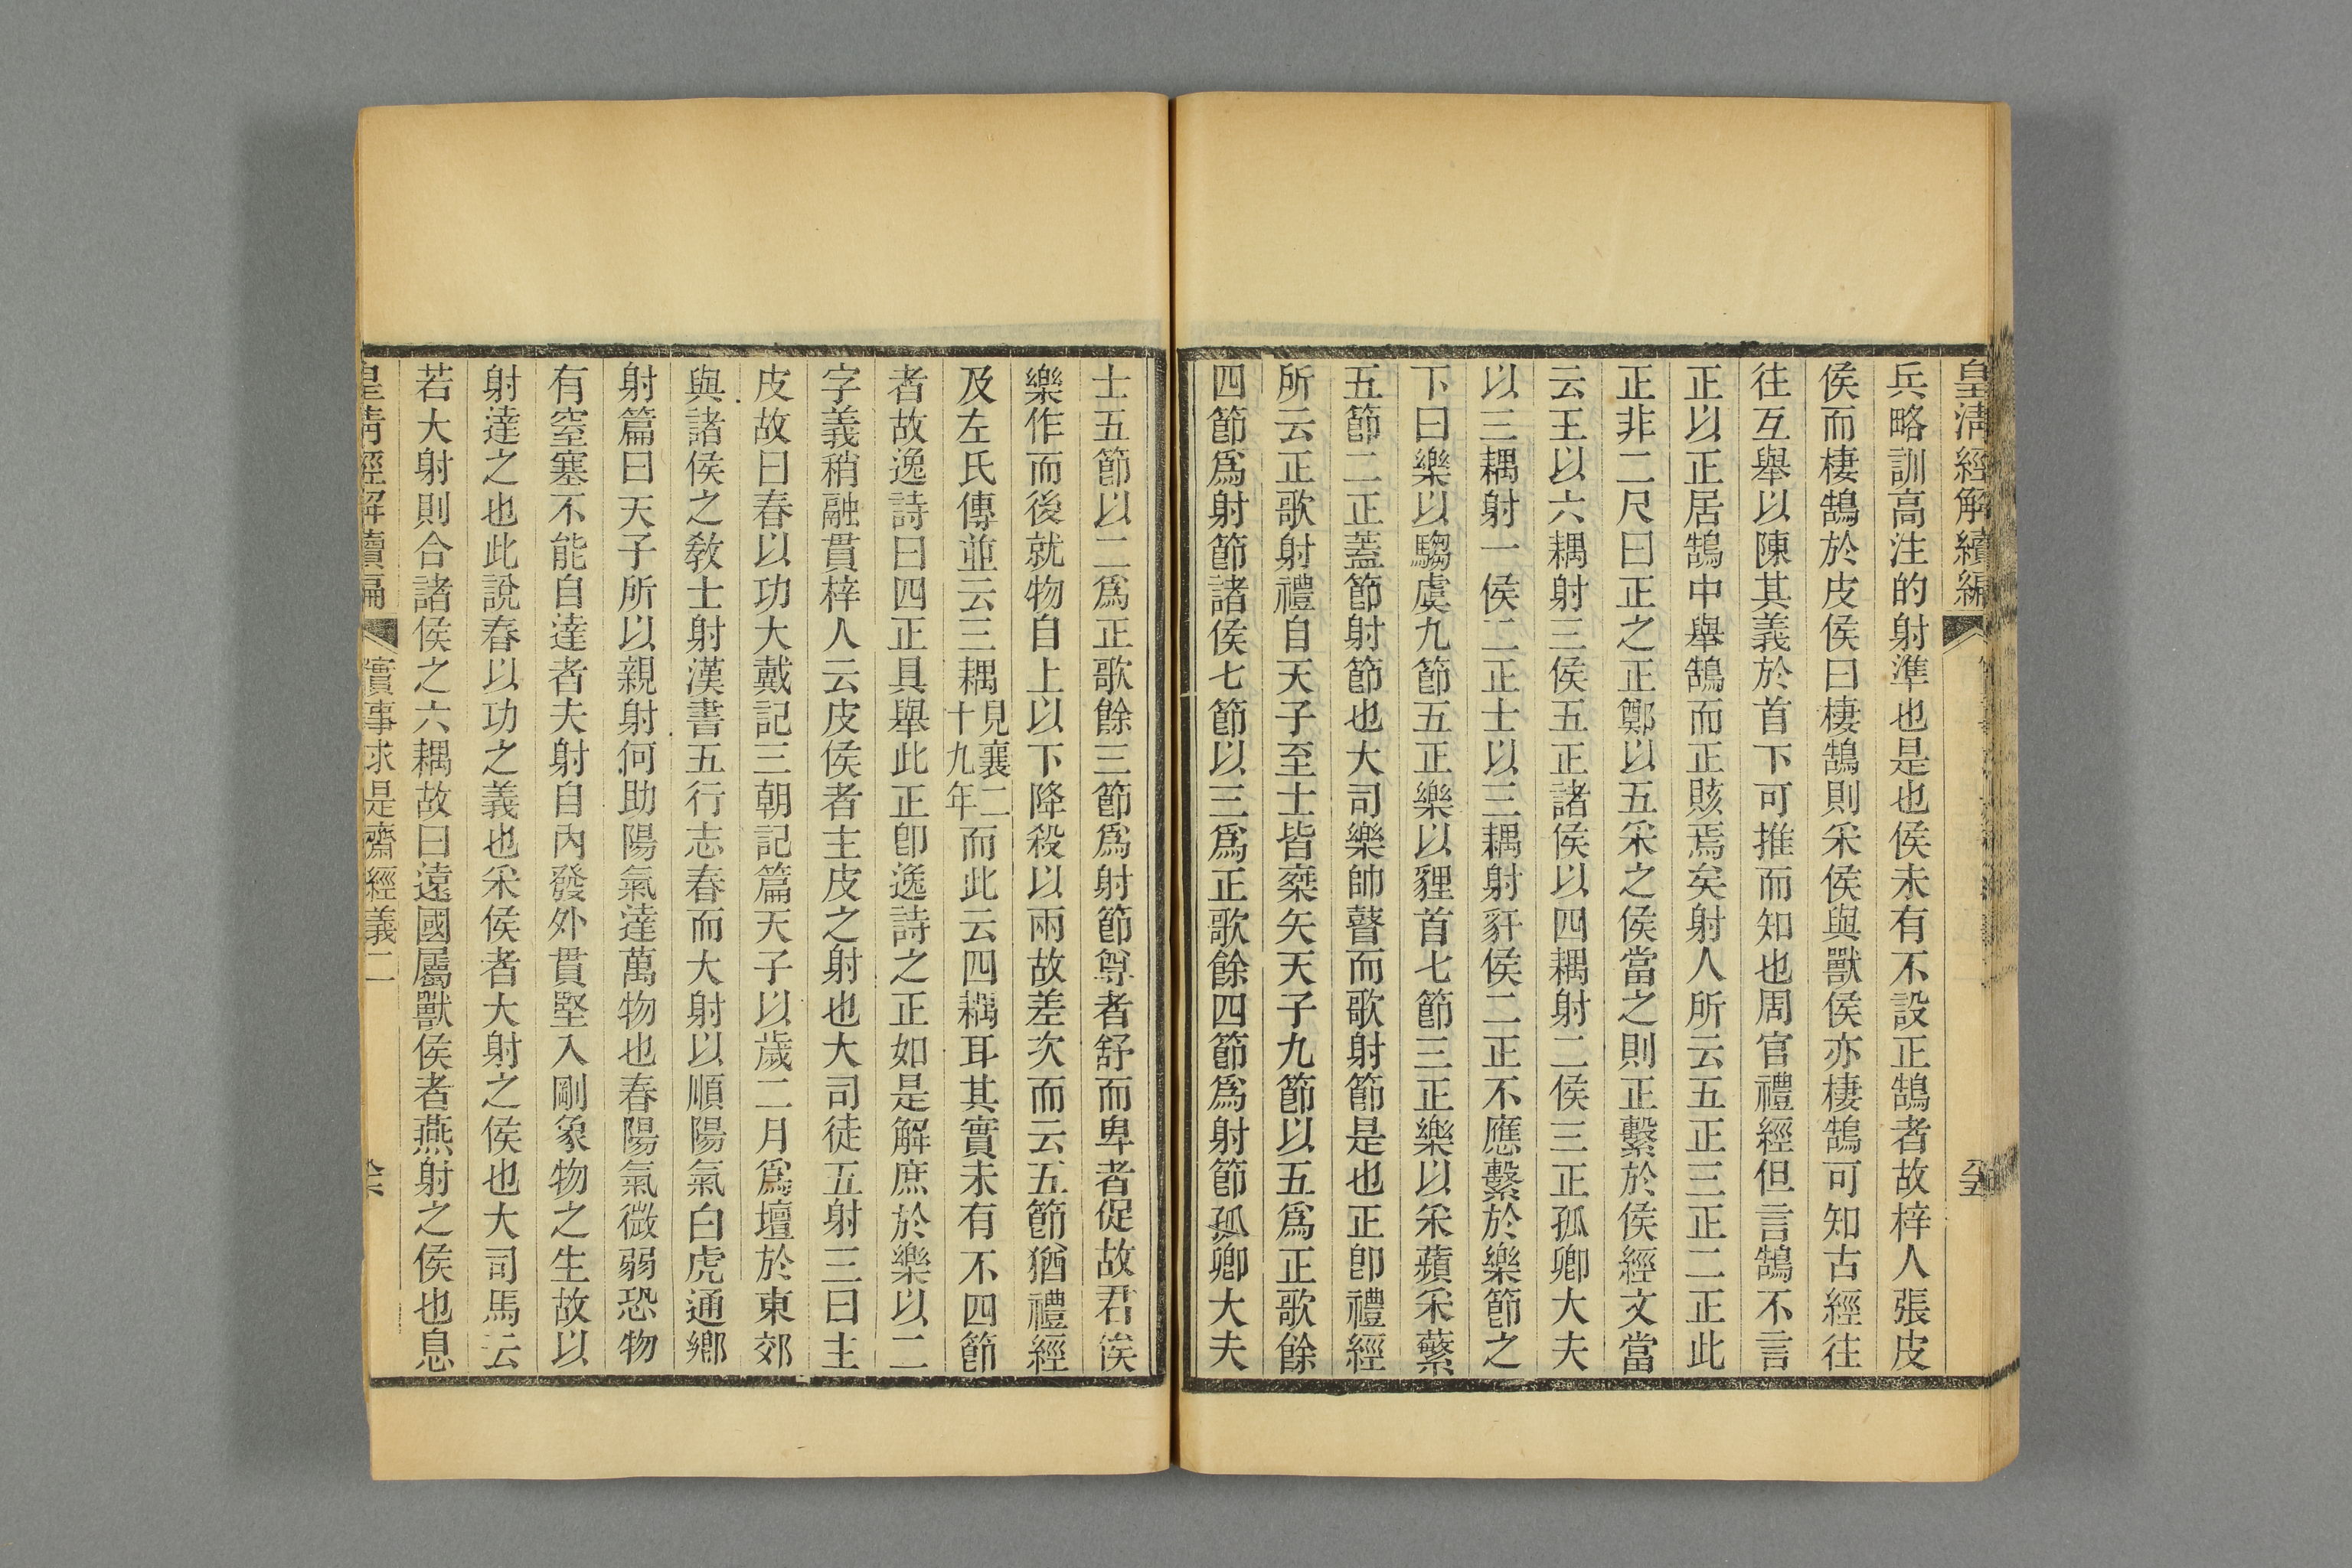 皇清經解續編
兵略訓高注的射準也是也侯未有不設正鵠者故梓人張皮
侯而棲鵠於皮侯曰棲鵠則采侯與獸侯亦棲鵠可知古經往
往互舉以陳其義於首下可推而知也周官禮經但言鵠不言
正以正居鵠中舉鵠而正賅焉矣射人所云五正三正二正此
正非二尺曰正之正鄭以五采之侯當之則正繫於侯經文當
云王以六耦射三侯五正諸侯以四耦射二侯三正孤卿大夫
以三耦射一侯二正士以三耦射豻侯二正不應繫於樂節之
下曰樂以騶虞九節五正樂以貍首七節三正樂以采蘋采蘩
五節二正蓋節射節也大司樂帥瞽而歌射節是也正卽禮經
所云正歌射禮自天子至士皆椉矢天子九節以五爲正歌餘
四節爲射節諸侯七節以三爲正歌餘四節爲射節孤卿大夫
士五節以二爲正歌餘三節爲射節尊者舒而卑者促故君俟
樂作而後就物自上以下降殺以兩故差次而云五節猶禮經
及左氏傳並云三耦見襄二十九年而此云四耦耳其實未有不四節
者故逸詩曰四正具舉此正卽逸詩之正如是解庶於樂以二
字義稍融貫梓人云皮侯者主皮之射也大司徒五射三曰主
皮故曰春以功大戴記三朝記篇天子以歲二月爲壇於東郊
與諸侯之敎士射漢書五行志春而大射以順陽氣白虎通鄉
射篇曰天子所以親射何助陽氣達萬物也春陽氣微弱恐物
有窒塞不能自達者夫射自內發外貫堅入剛象物之生故以
射達之也此說春以功之義也采侯者大射之侯也大司馬云
若大射則合諸侯之六耦故曰遠國屬獸侯者燕射之侯也息
皇清經解續編 實事求是齋經義二